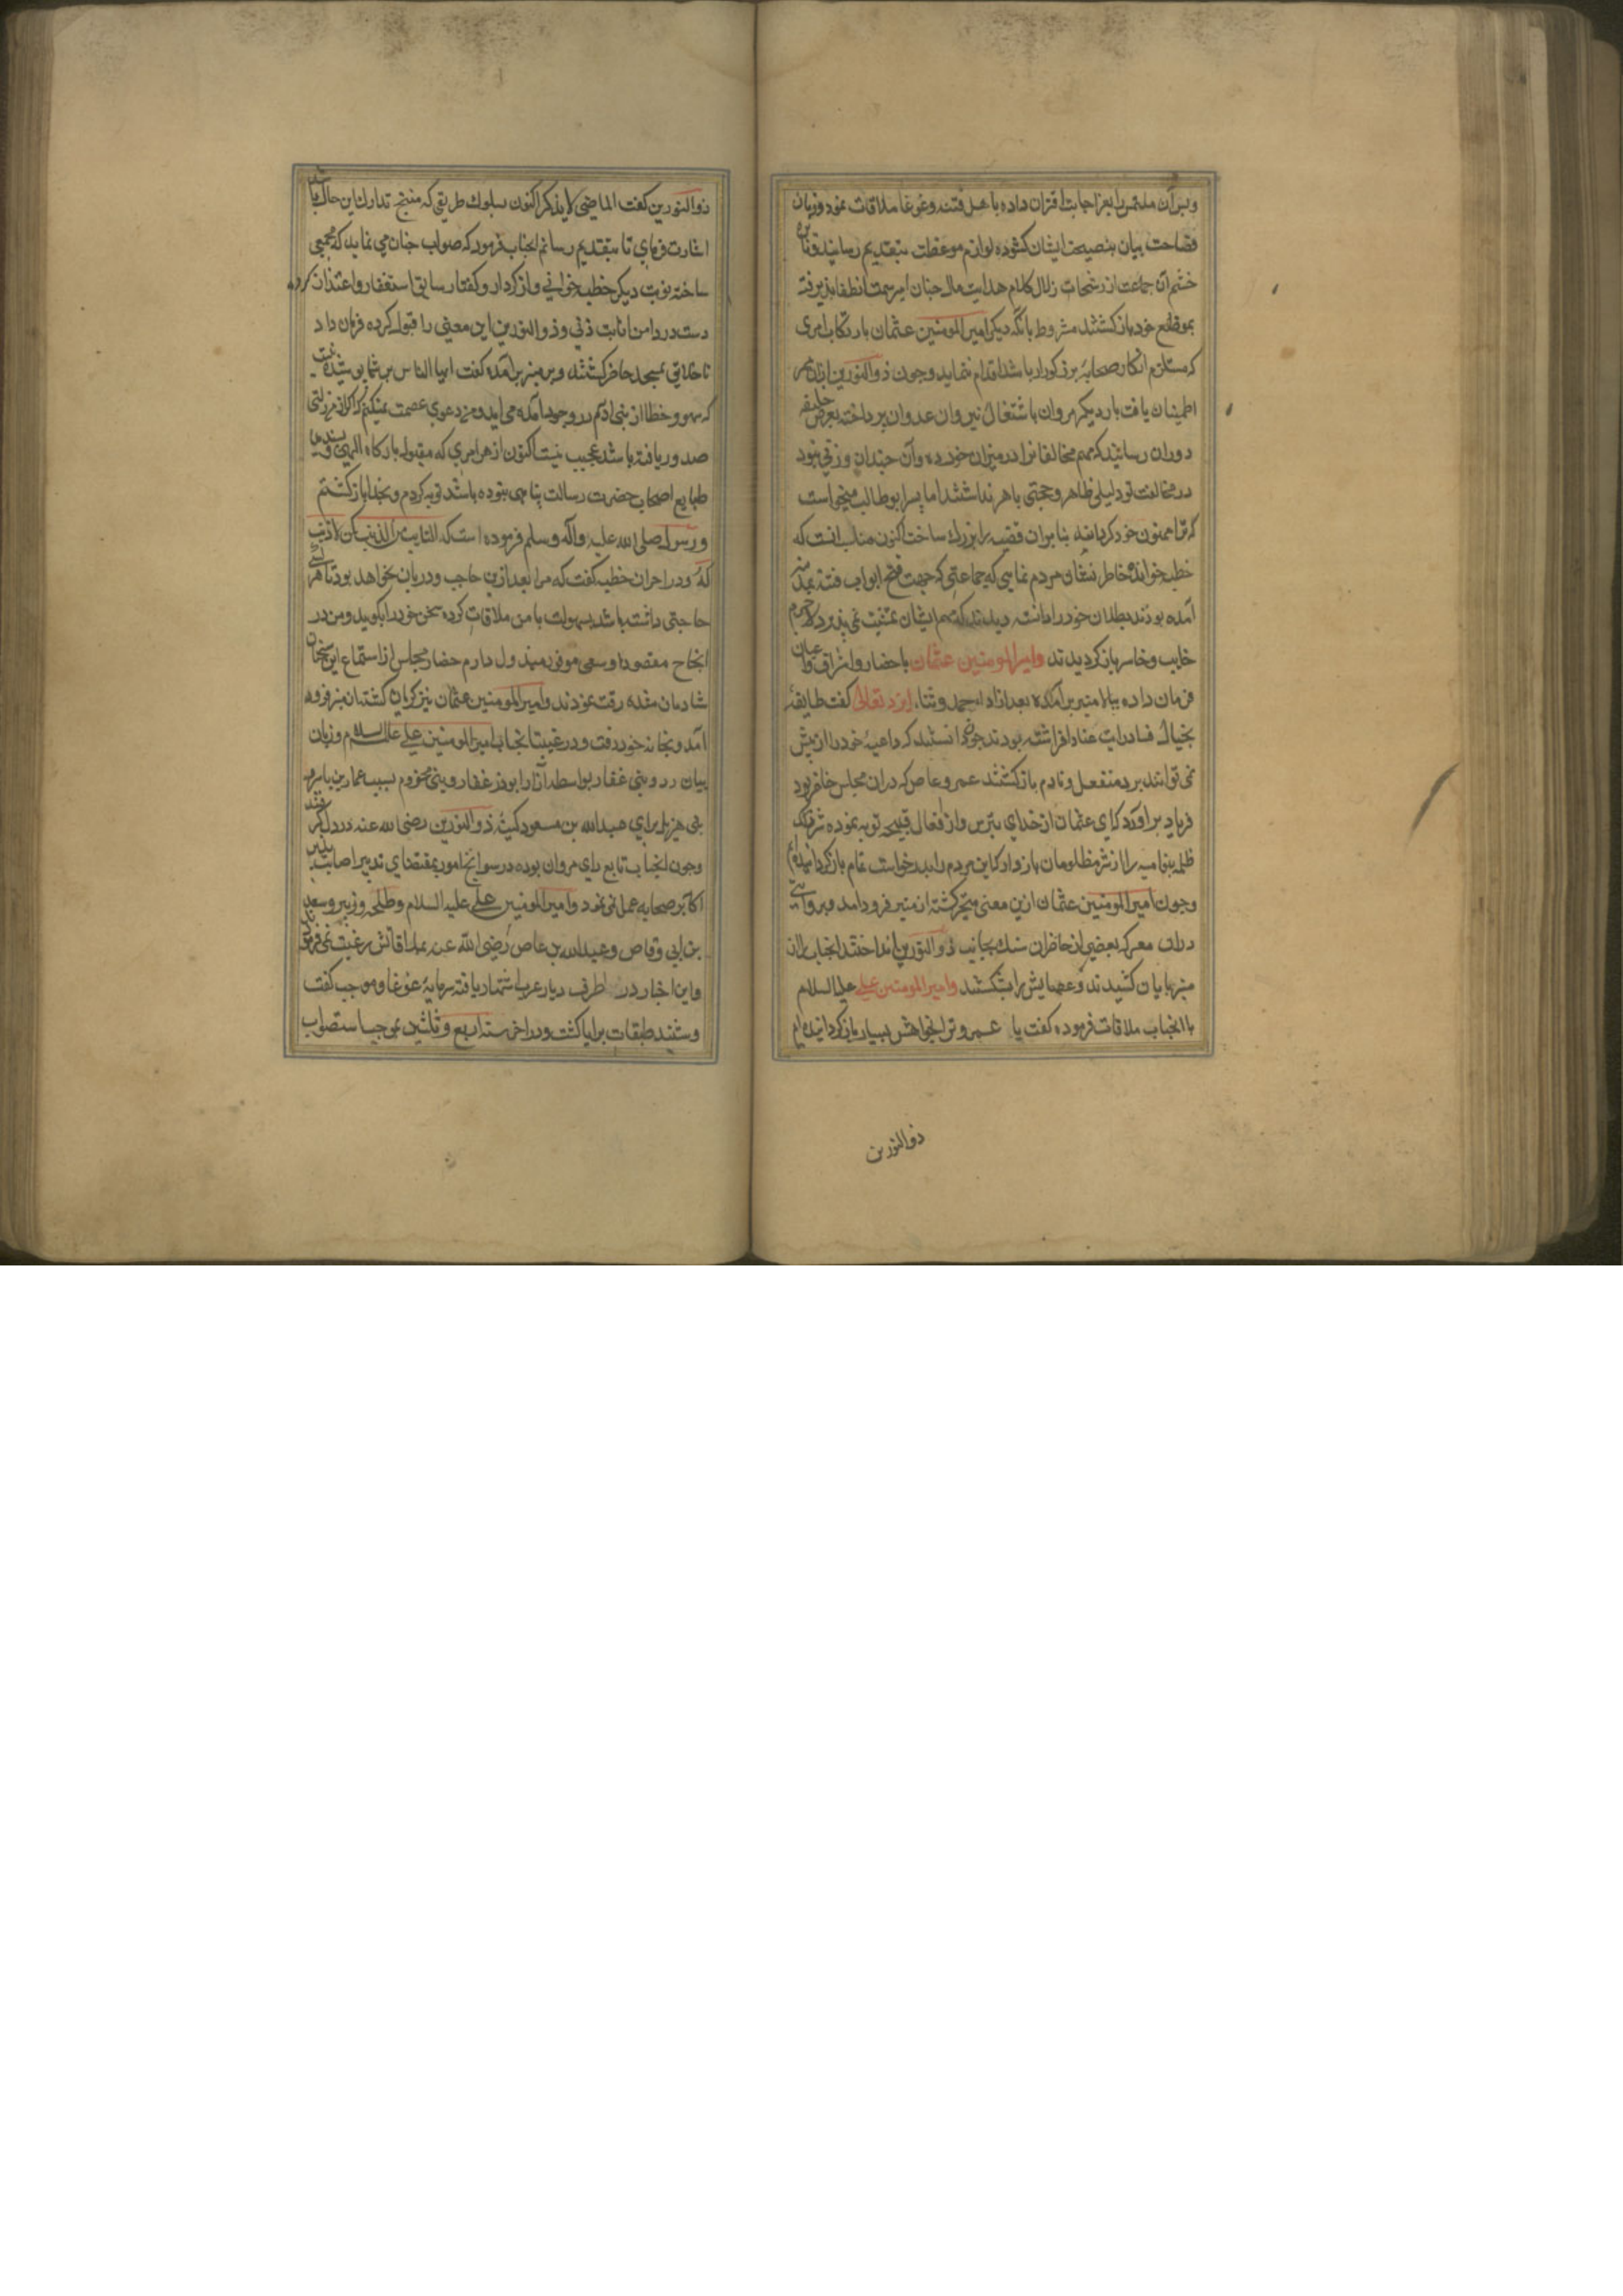 و بر آن ملتمس را بعز اجابت اقتران داده با اهل فتنه و غوغا ملاقات نمود و زبان
فصاحت بیان بنصیحت ایشان کشوده لوازم موعظت بتقدیم رسانید و نایره
خشم آن جماعت از رشحات زلال کلام هدایت مال جنان امیر سمت انطفا پذیرفته
بمواضع خود باز کشتند مشروط بانکه دیکر امیر المومنین عثمان بارتکاب امری
که مستلزم انکار صحابهٔ بزرکوار باشد اقدام ننماید و چون ذوالنورین ازان ممر
اطمینان یافت بار دیکر مروان باشتعال نیران عدوان پرداخته بعرض خلیفه
دوران رسانید که مهم مخالفانرا در میزان خرد ده و آن چندان وزنی نبود
در مخالفت تو دلیلی ظاهر و حجتی باهر نداشتند اما پسر ابوطالب میخواست
که ترا ممنون خود کرداند بنابران قضیه را بزرک ساخت اکنون مناسب انست که
خطبه خوانده خاطر نشان مردم نمایی که جماعتی که جهت فتح ابواب فتنه بمدینه
آمده بودند بطلان خود را دانسته دیدند که مهم ایشان تمشیت نمی پذیرد لاجرم
خایب و خاسر باز کردیدند وامیر المومنین عثمان باحضار و اشراف و اعیان
فرمان داده ببالا منبر برآمده بعد از اداء حمد و ثناء ایزد تعالی کفت طایفهٔ
بخیال فساد رایت عناد افراشته بودند چون دانستند که داعیهٔ خود را از پیش
نمی توانند برد منفعل و نادم باز کشتند عمرو عاص که دران مجلس حاضر بود
فریاد برآورد که ای عثمان از خدای بترس و از افعال قبیحه توبه نموده شر
ظلمه بنی امیه را از سر مظلومان باز دار که این مردم را بدرخواست تمام باز کردانیده ام
و چون امیر المومنین عثمان ازین معنی متحیر کشته از منبر فرود امد و بروایتی
دران معرکه بعضی از حاضران سنک بجانب ذوالنورین انداختند انجناب را از
منبر بپایان کشیدند و عصایش را بشکستند وامیر المومنین علی علیه السلام
با انجناب ملاقات فرموده کفت یا عمرو ترا بخواهش بسیار باز کردانیده ام
ذوالنورین
ذوالنورین کفت الماضی لا یذکر اکنون بسلوک طریقی که منتج تدارک این حال باشد
اشارت فرمای تا بتقدیم رسانم انجناب فرمود که صواب چنان می نماید که مجمعی
ساخته نوبت دیکر خطبه خوانی و از کردار و کفتار سابق استغفار و اعتذار کرده
دست در دامن انابت زنی و ذوالنورین این معنی را قبول کرده فرمان داد
تا خلایق بمسجد حاضر کشتند و بر منبر برآمده کفت ایها الناس بر شما پوشیده نیست
که سهو و خطا از بنی ادم در وجود آمده می اید و من دعوی عصمت نمیکنم که اکر از من زلتی
صدور یافته باشد عجیب نیست اکنون از هر امری که مقبول بارکاه الهی و پسندیده
طبایع اصحاب حضرت رسالت پناهی نبوده باشد توبه کردم و بخدا باز کشتم
و رسول صلی الله علیه و آله وسلم فرموده است که التایب من الذنب کمن لا ذنب
له و در اخر ان خطبه کفت که مرا بعد ازین حاجب و دربان نخواهد بود تا هر که را
حاجتی داشته باشد بسهولت با من ملاقات کرده سخن خود را بکوید و من در
انجاح مقصود او سعی موفور مبذول دارم حضار مجلس از استماع این سخنان
شادمان شده رقت نمودند و امیر المومنین عثمان نیز کریان کشته از منبر فرود
آمد و بخانه خود رفت و در غیبت انجناب امیر المومنین علی علیه السلام و زبان
بیان و بنی غفار بواسطه آزار ابوذر غفار و بنی مخزوم بسبب عمار بن یاسر و
بنی هذیل برای عبدالله بن مسعود کینهٔ ذوالنورین رضی الله عنه در دل کرفتند
و چون انجناب تابع رای مروان بوده در سوانح امور بمقتضای تدبیر اصابت پذیر
اکابر صحابه عمل نمی نمود و امیر المومنین علی علیه السلام و طلحه و زبیر و سعد
بن ابی وقاص و عبدالله بن عاص رضی الله عنه بملاقاتش رغبت نمی فرمودند
و این اخبار در اطراف دیار عرب اشتهار یافته سرمایهٔ غوغا و موجب کفت
و شنید طبقات برایا کشت و در اخر سنه اربع و ثلثین بموجب استصواب